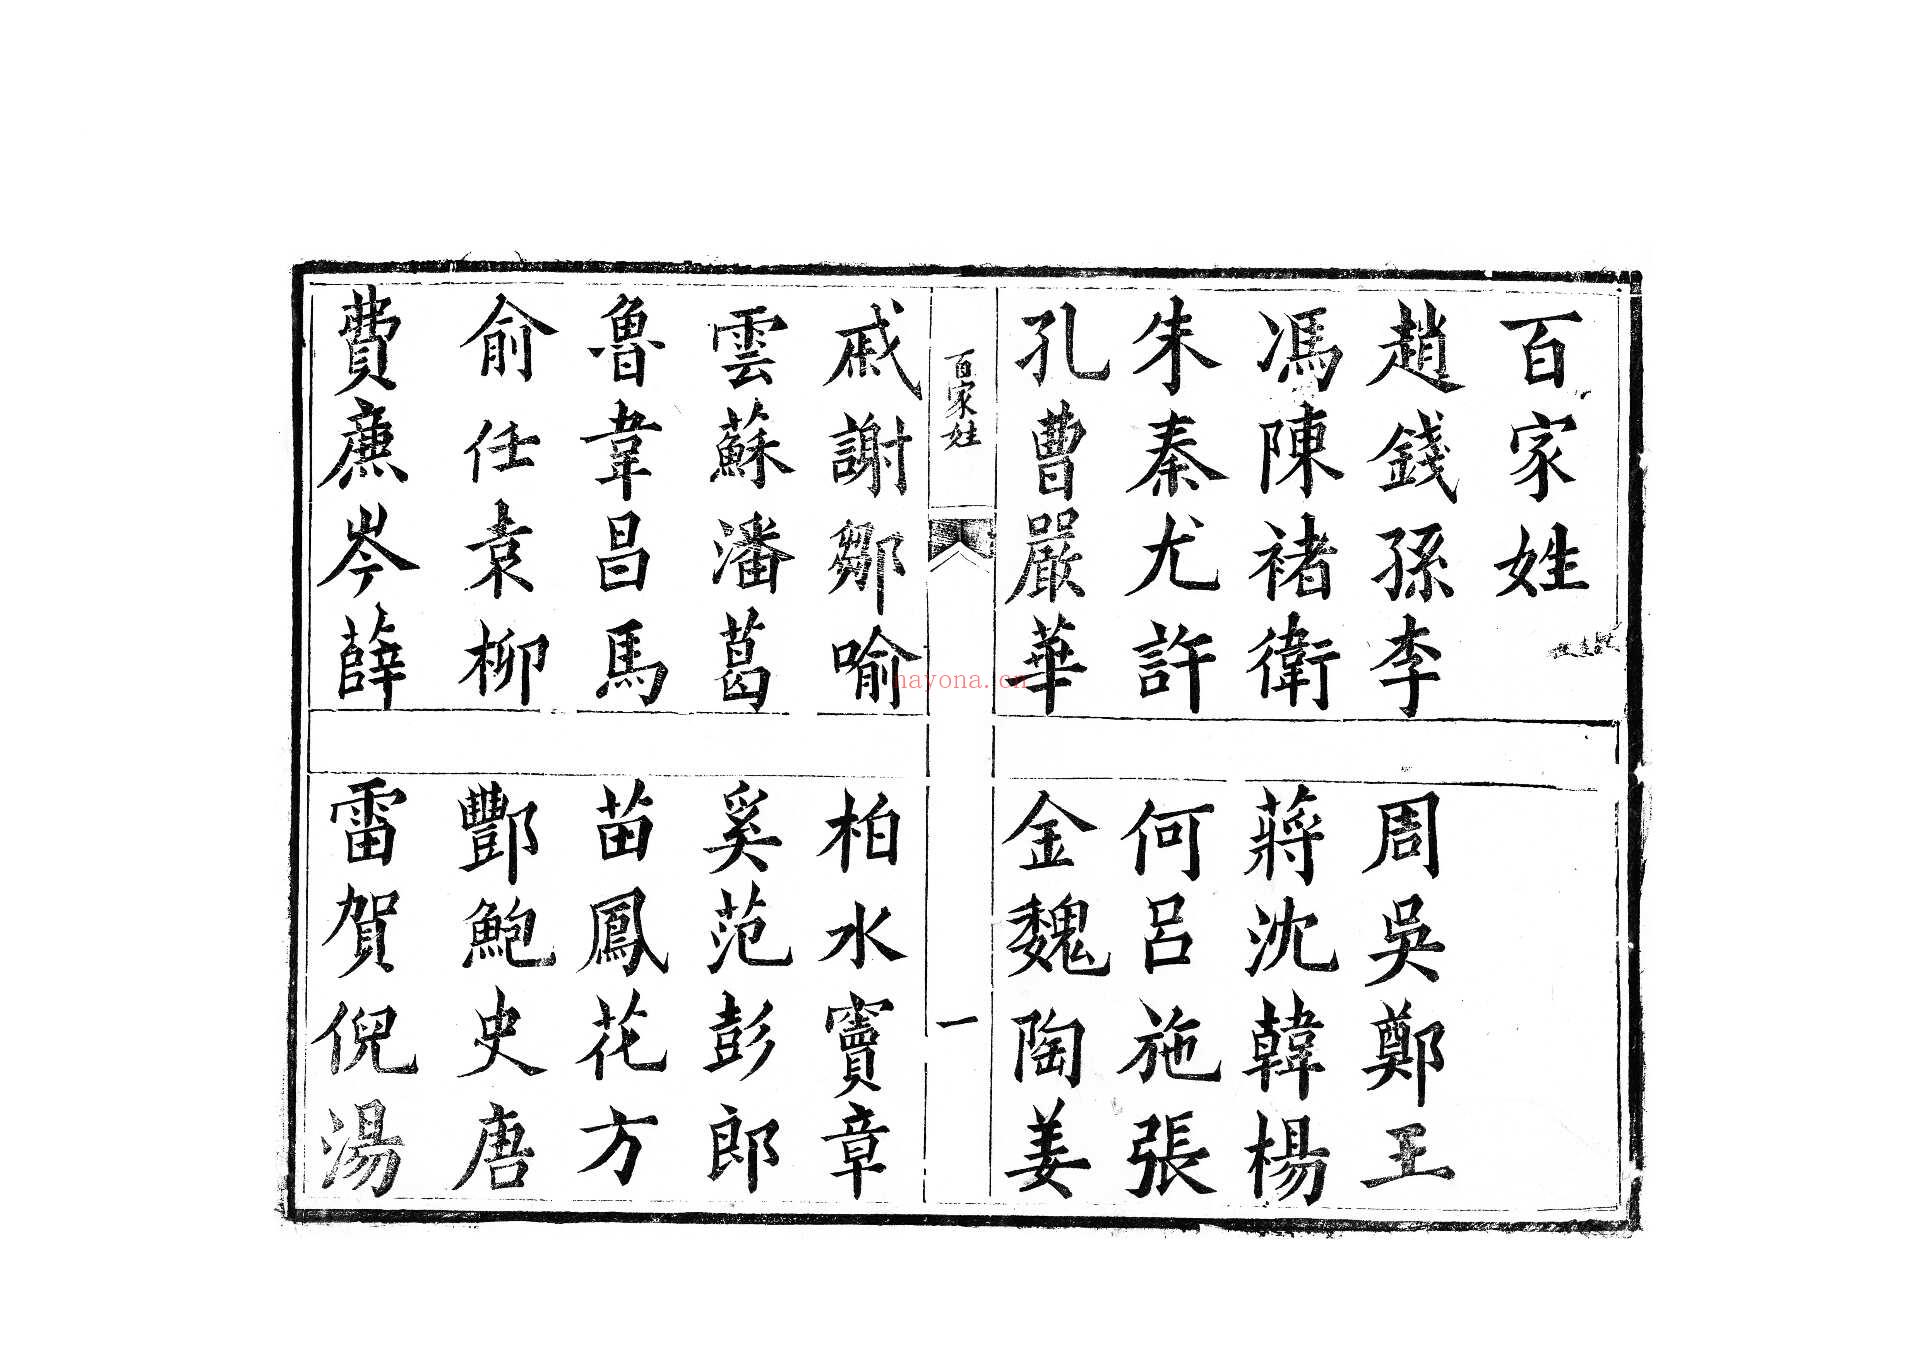 百家姓
趙錢孫李
周吳鄭王
馮陳褚衛
蔣沈韓楊
朱秦尤許
何呂施張
孔曹嚴華
金魏陶姜
百家姓
一
戚謝鄒喻
柏水竇章
雲蘇潘葛
奚范彭郎
魯韋昌馬
苗鳳花方
俞任袁柳
酆鮑史唐
費廉岑薛
雷賀倪湯
nayona.cn